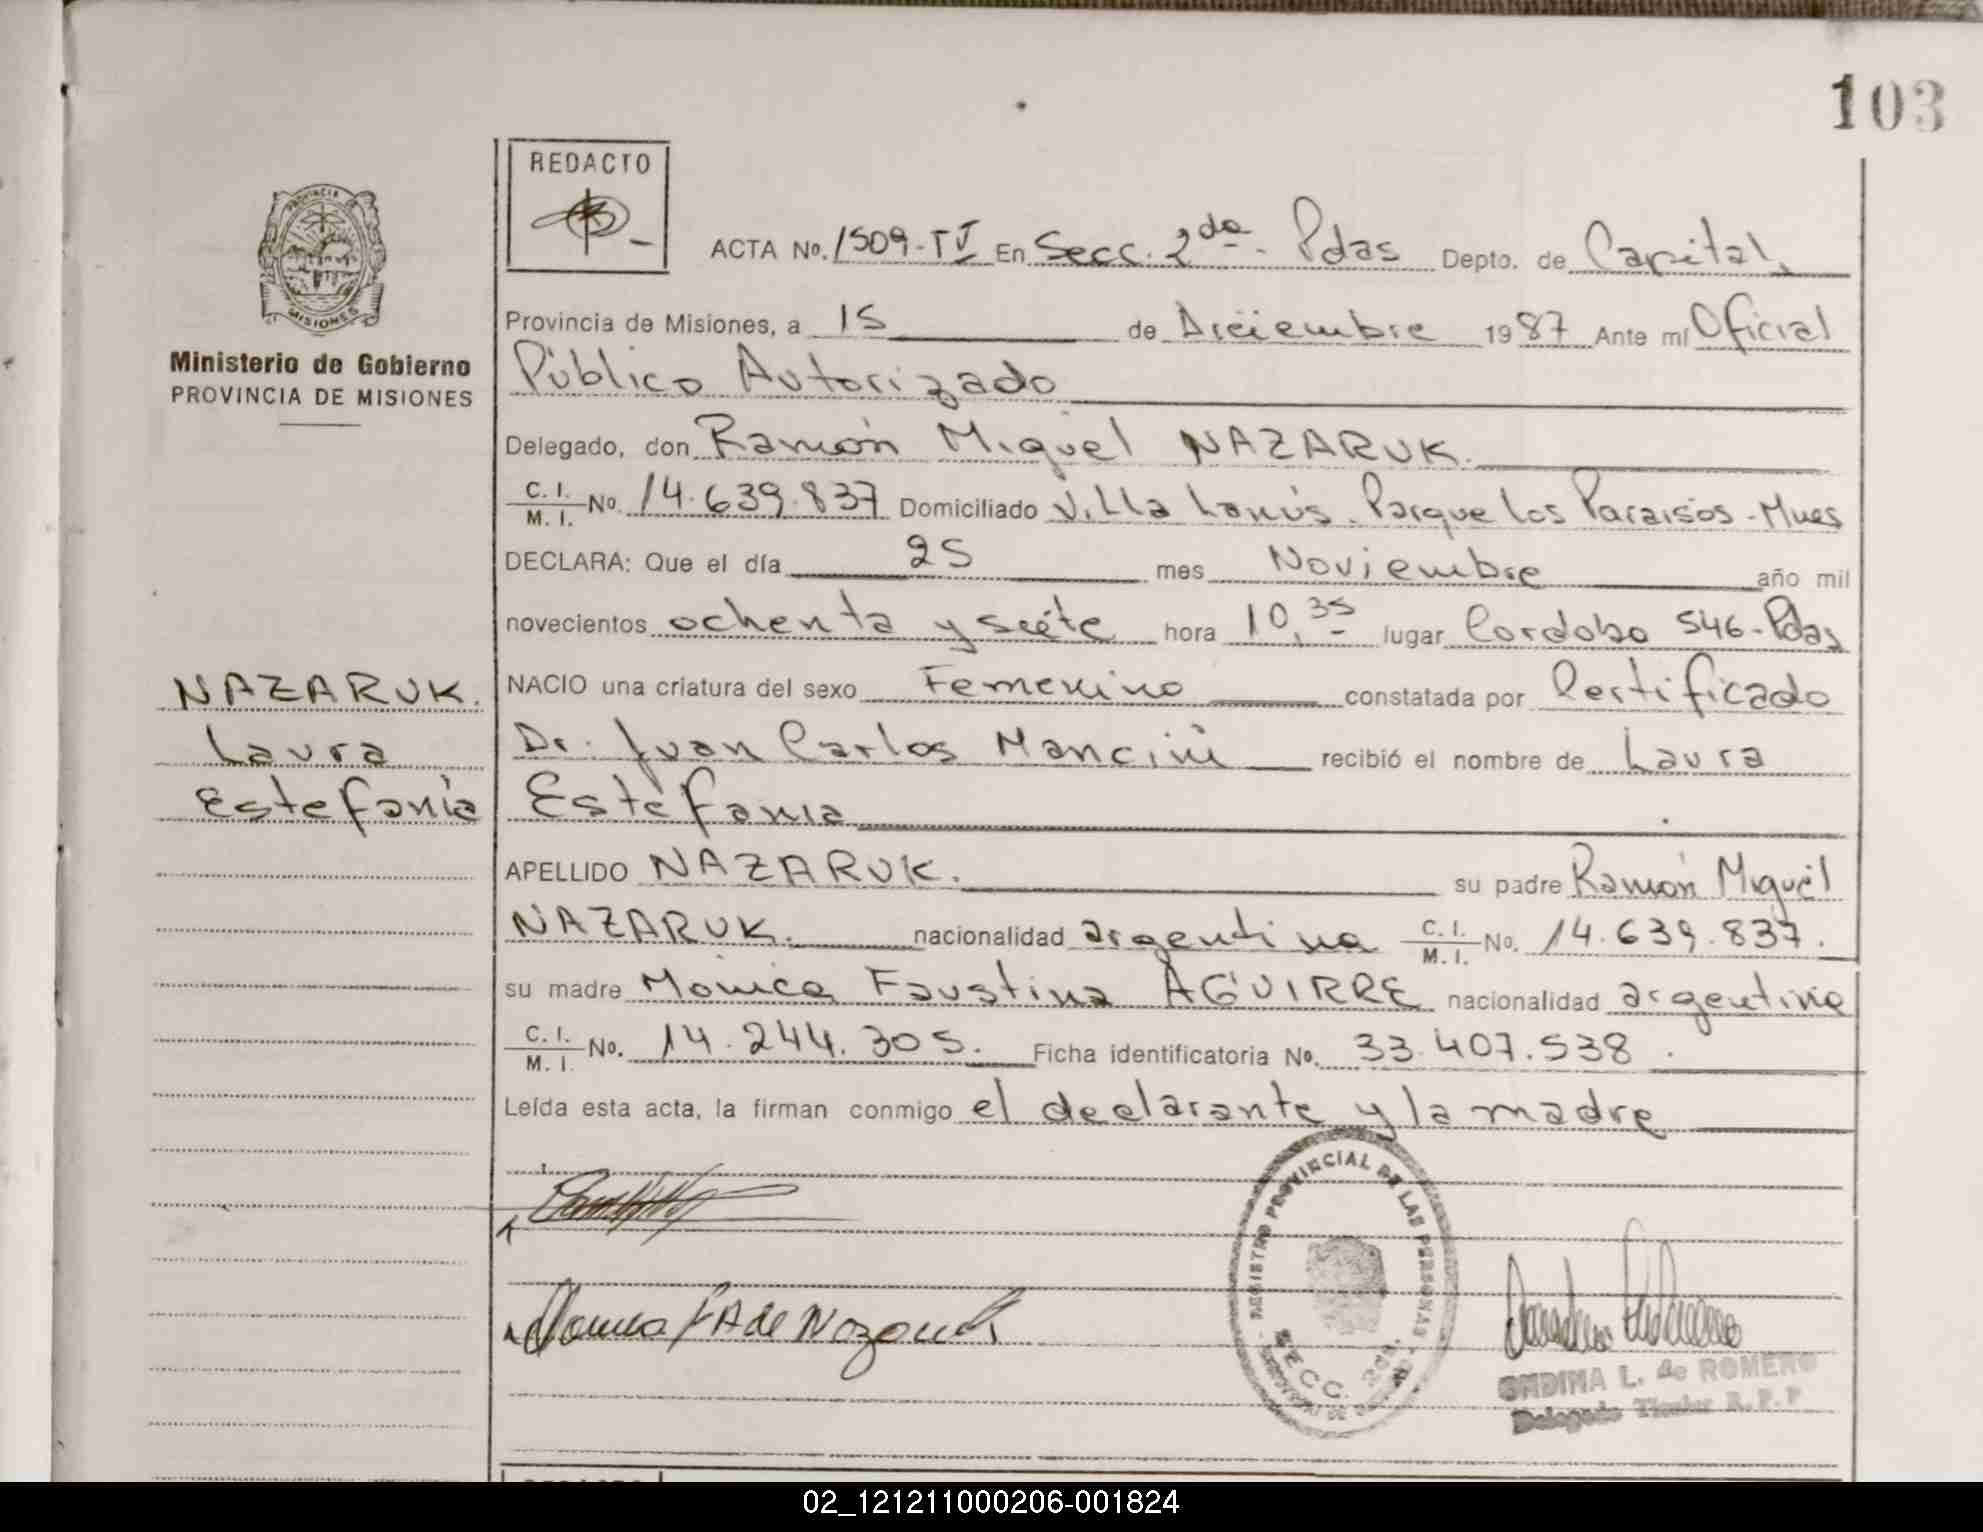 103
REDACTO
PROVINCIA
MISIONES
Ministerio de Gobierno
PROVINCIA DE MISIONES
ACTA No. 1509-TV En Secc. 2da - Pdas Depto. de Capital,
Provincia de Misiones, a 15 de Diciembre 1987 Ante mí Oficial
Público Autorizado
Delegado, don Ramón Miguel NAZARUK.
C. I. / M. I. No. 14.639.837 Domiciliado Villa Lanús. Parque los Paraisos - Mnes
DECLARA: Que el día 25 mes Noviembre año mil
novecientos ochenta y siete hora 10,35 lugar Cordoba 546 - Pdas
NACIO una criatura del sexo Femenino constatada por Certificado
Dr. Juan Carlos Mancini recibió el nombre de Laura
Estefania
NAZARUK.
Laura
Estefanía
APELLIDO NAZARUK. su padre Ramón Miguel
NAZARUK. nacionalidad argentina C. I. / M. I. No. 14.639.837.
su madre Mónica Faustina AGUIRRE nacionalidad argentina
C. I. / M. I. No. 14.244.305. Ficha identificatoria No. 33.407.538.
Leída esta acta, la firman conmigo el declarante y la madre
REGISTRO PROVINCIAL DE LAS PERSONAS
SECC. 2da.
Monica F A de Nazaruk
ONDINA L. de ROMERO
Delegado Titular R. P. P
02_121211000206-001824